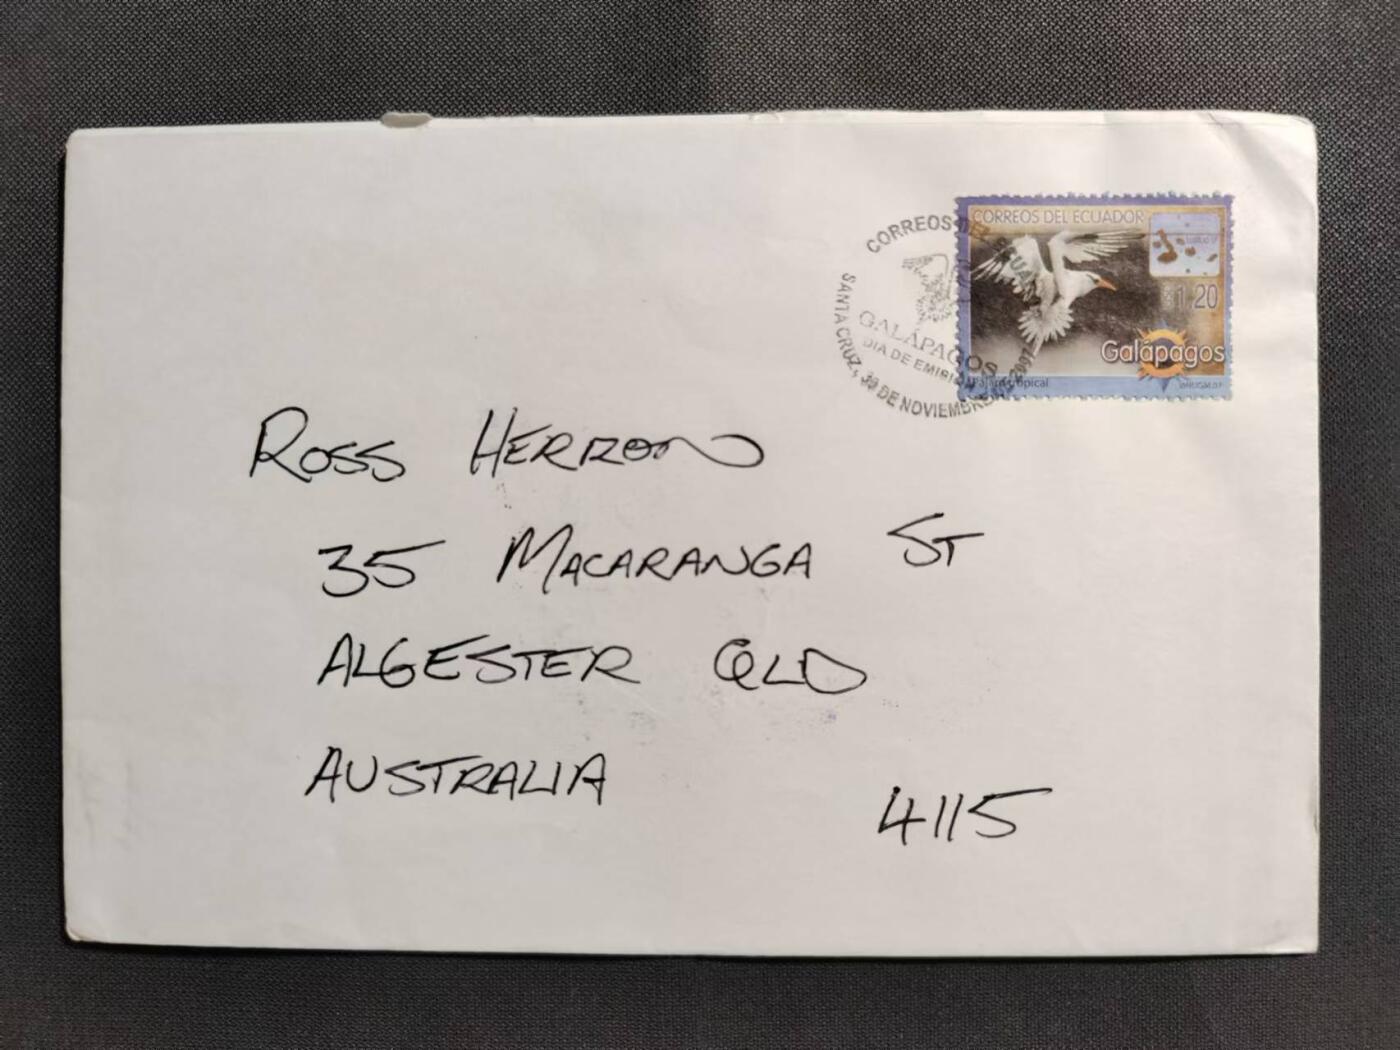 CORREOS DEL ECUADOR
1.20
Galápagos
Pájaro tropical
CORREOS DEL
GALÁPAGOS
DIA DE EMISIÓN
SANTA CRUZ, 30 DE NOVIEMBRE 2007
ROSS HERRON
35 MACARANGA ST
ALGESTER QLD
AUSTRALIA
4115